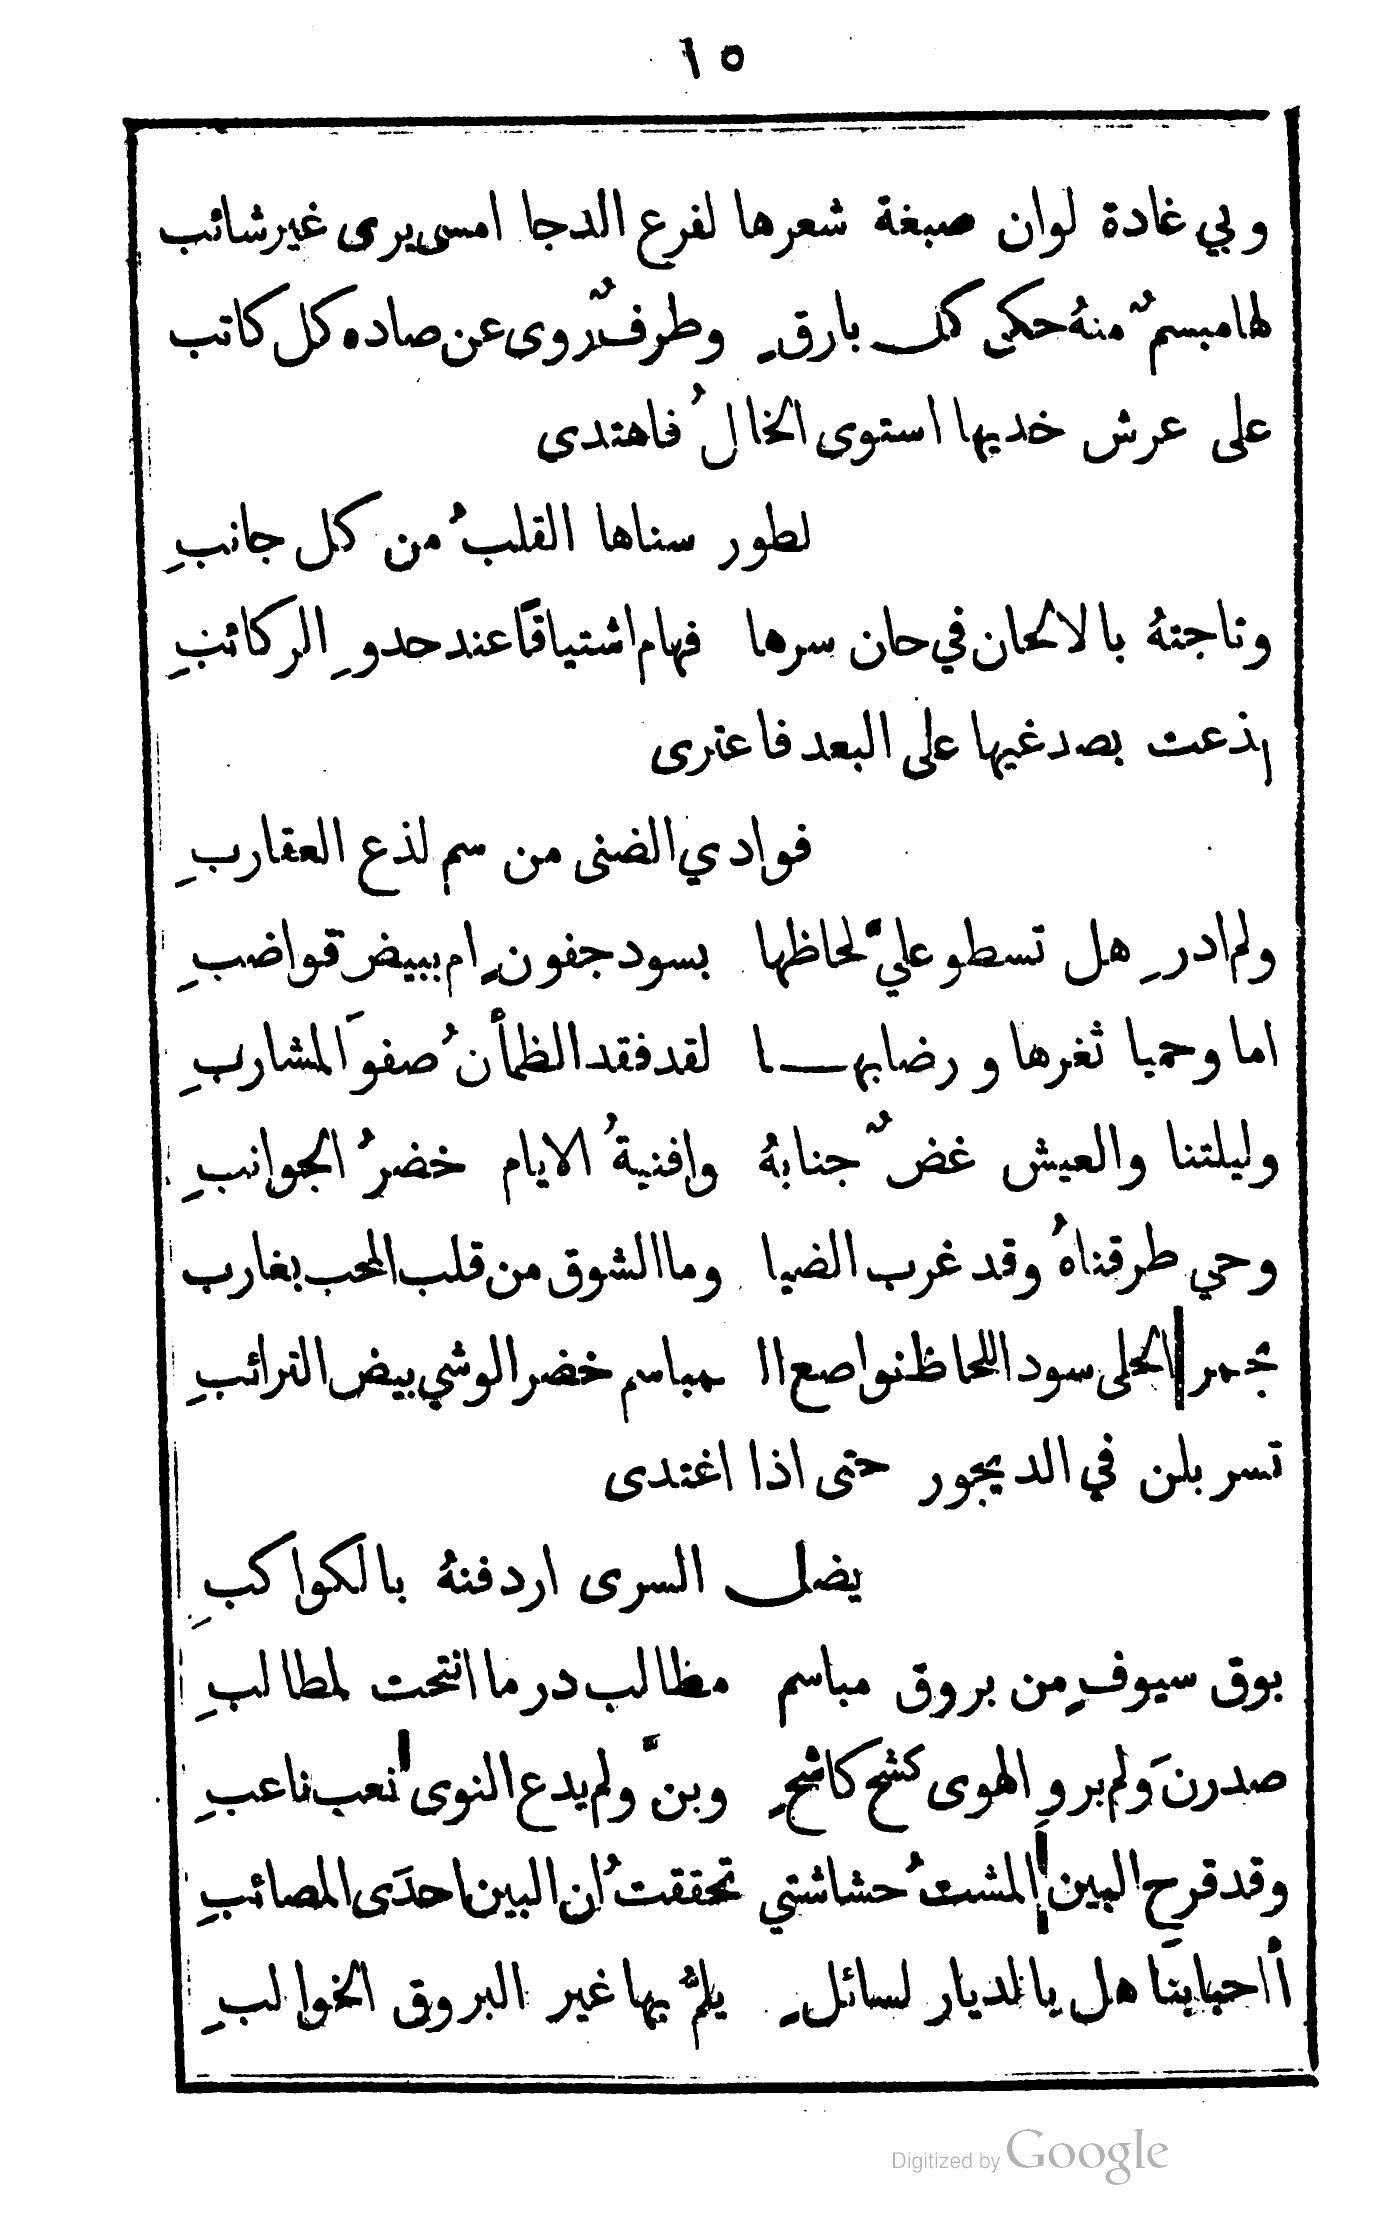 ١٥
وبي غادة لوان صبغة شعرها لفرع الدجا امسى يرى غير شائب
لها مبسمٌ منهُ حكى كل بارقٍ وطرفٌ روى عن صاده كل كاتب
على عرش خديها استوى الخالُ فاهتدى
لطور سناها القلبُ من كل جانبِ
وناجتهُ بالالحان في حان سرها فهام اشتياقًا عند حدوِ الركائبِ
لذعت بصدغيها على البعد فاعترى
فوادي الضنى من سم لذع العقاربِ
ولم ادرِ هل تسطو عليَّ لحاظها بسود جفونٍ ام ببيض قواضبِ
اما وحميا ثغرها ورضابهـــا لقد فقد الظمأنُ صفوَ المشاربِ
وليلتنا والعيش غضٌ جنابهُ وافنيةُ الايام خضرُ الجوانبِ
وحي طرقناهُ وقد غرب الضيا وما الشوق من قلب المحب بغارب
بحمر الحلى سود اللحاظ نواصع الـ ـمباسم خضر الوشي بيض الترائبِ
تسربلن في الديجور حتى اذا اغتدى
يضل السرى اردفنهُ بالكواكبِ
بوق سيوفٍ من بروق مباسم مظالب در ما انتحت لمطالبِ
صدرنَ ولم يروِ الهوى كشح كاشحٍ وبنَّ ولم يدع النوى نعب ناعبِ
وقد قرح البين المشتُ حشاشتي تحققتُ ان البين احدَى المصائبِ
أاحبابنَا هل بالديار لسائلٍ يلمُّ بها غير البروق الخوالبِ
Digitized by Google